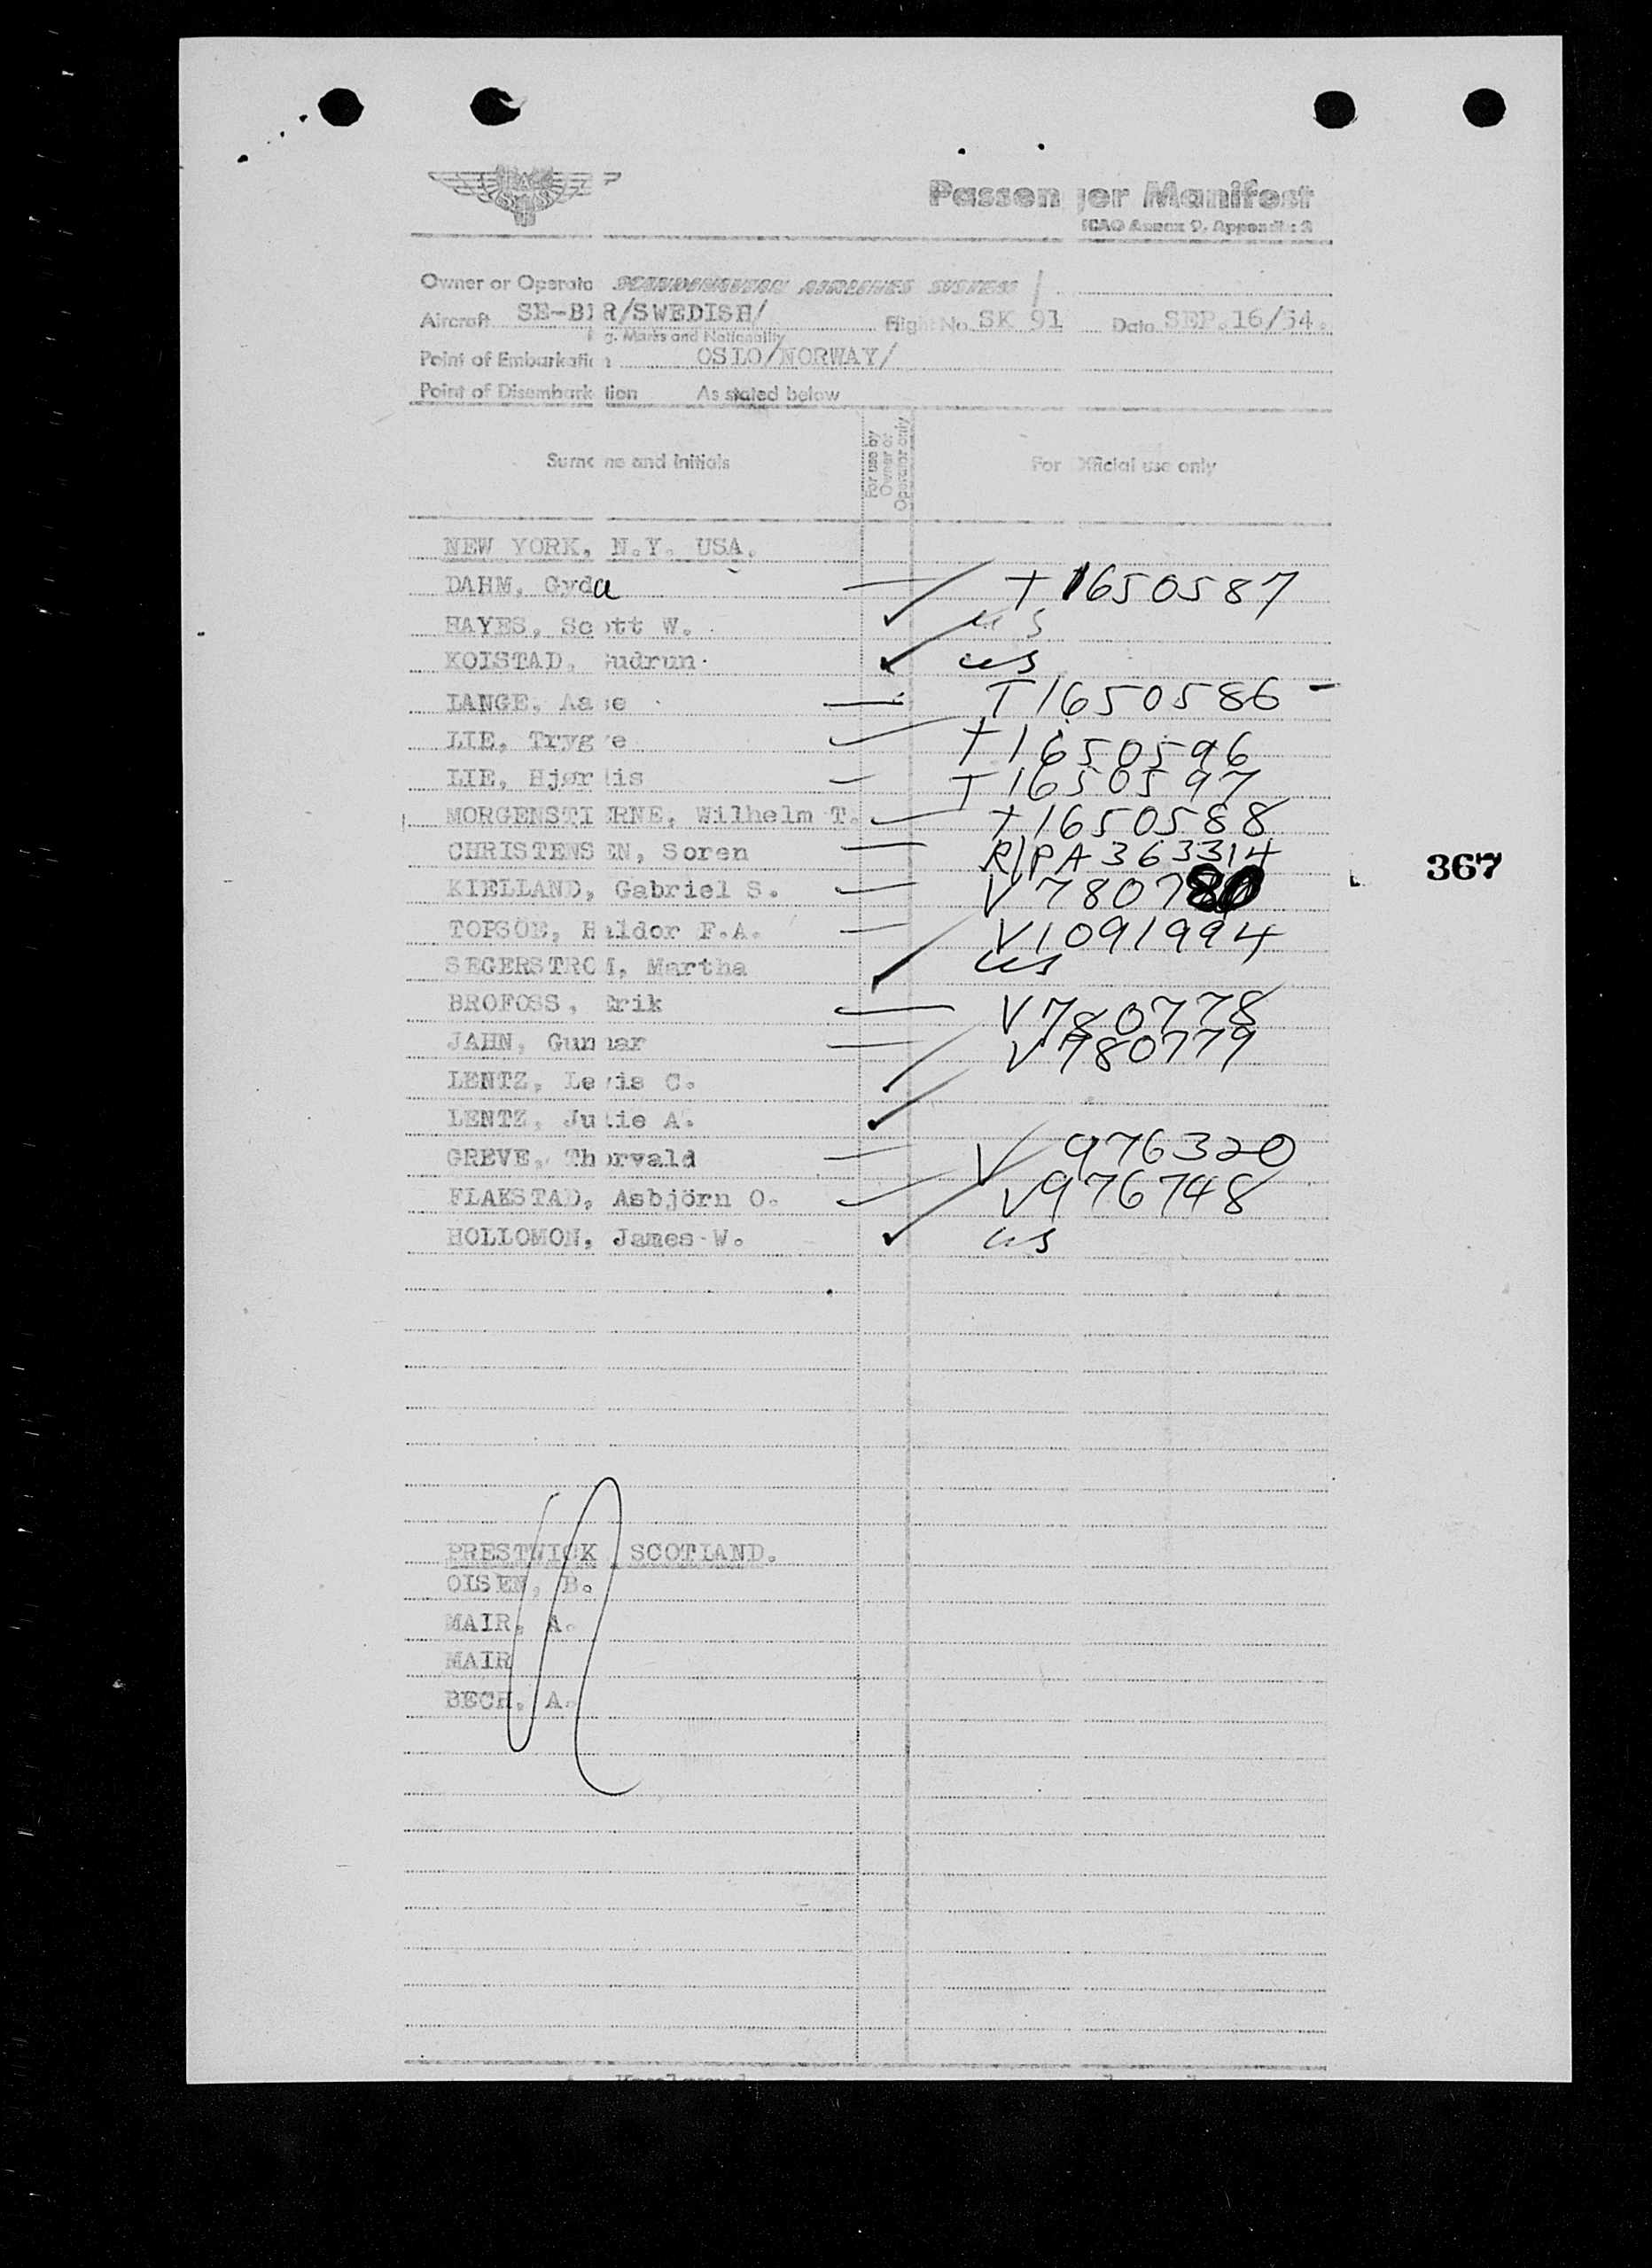 Passenger Manifest
ICAO Annex 9, Appendix 3
Owner or Operato SCANDINAVIAN AIRLINES SYSTEM
Aircraft SE-BDR/SWEDISH/ Flight No. SK 91 Date SEP. 16/54.
g. Marks and Nationality
Point of Embarkation OSLO/NORWAY/
Point of Disembarkation As stated below
Surname and initials For use by Owner or Operator only For official use only
NEW YORK, N.Y. USA.
DAHM, Gyda T1650587
HAYES, Scott W. us
KOLSTAD, Gudrun us
LANGE, Aase T1650586
LIE, Trygve T1650596
LIE, Hjørdis T1650597
MORGENSTIERNE, Wilhelm T. T1650588
CHRISTENSEN, Soren R/PA363314
KIELLAND, Gabriel S. V780780
TOPSÖE, Haldor F.A. V1091994
SEGERSTROM, Martha us
BROFOSS, Erik V780778
JAHN, Gunnar V780779
LENTZ, Lewis C.
LENTZ, Julie A.
GREVE, Thorvald V976320
FLAKSTAD, Asbjörn O. V976748
HOLLOMON, James W. us
367
PRESTWICK, SCOTLAND.
OLSEN, B.
MAIR, A.
MAIR
BECH, A.